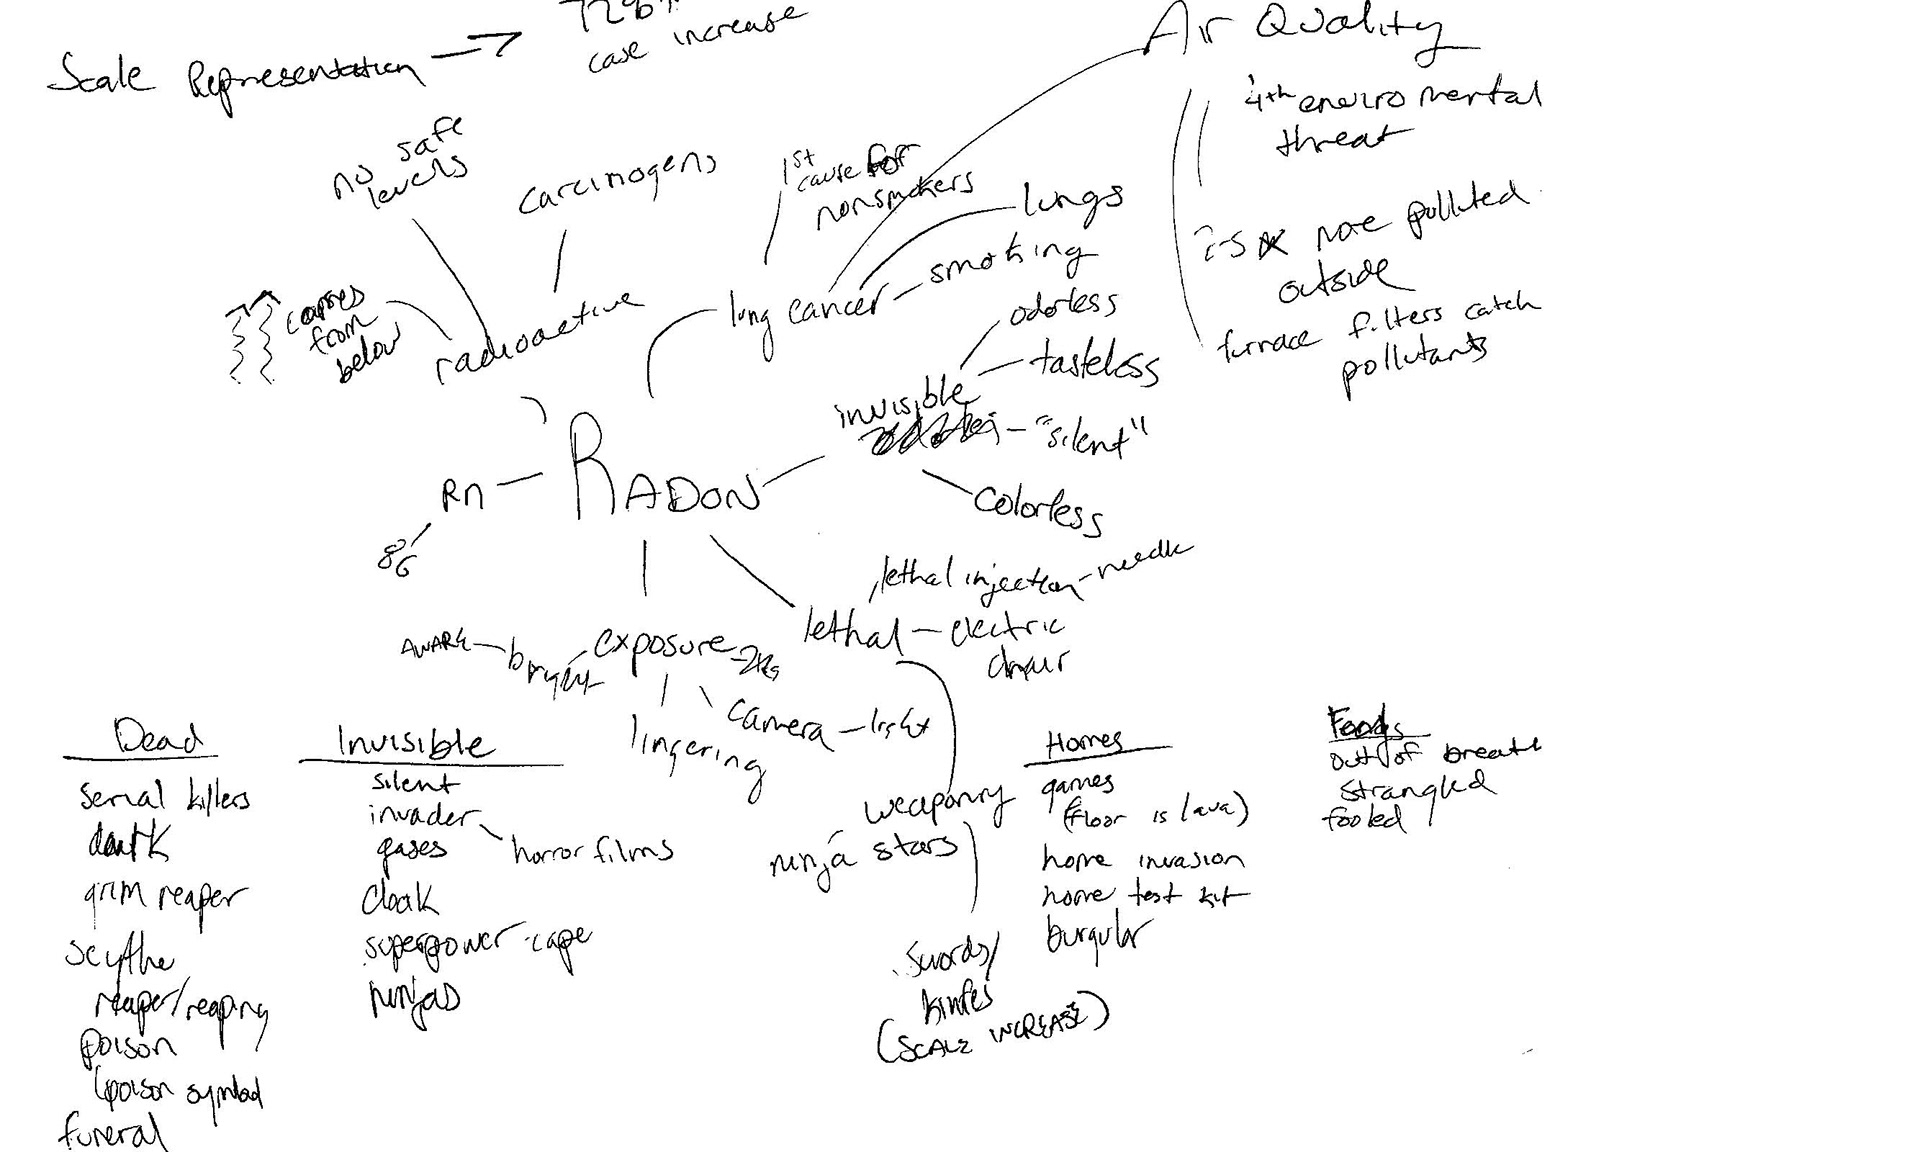 Scale Representation →
case increase
Air Quality
4th enviromental
threat
more polluted
outside
furnace filters catch
pollutants
no safe
levels
carcinogens
1st
cause for
nonsmokers
lungs
smoking
lung cancer
comes
from
below
radioactive
odorless
tasteless
invisible
"silent"
colorless
RADON
Rn
86
lethal injection - needle
lethal - electric
chair
AWARE
bright
exposure
camera - light
lingering
weaponry
ninja stars
swords/
kinfes
(SCALE INCREASE)
Dead
serial killers
dark
grim reaper
scythe
reaper/reaping
poison
(poison symbol
funeral
Invisible
silent
invader
gases
horror films
cloak
superpower - cape
ninjas
Homes
games
(floor is lava)
home invasion
home test kit
burgular
out of breath
strangled
fooled